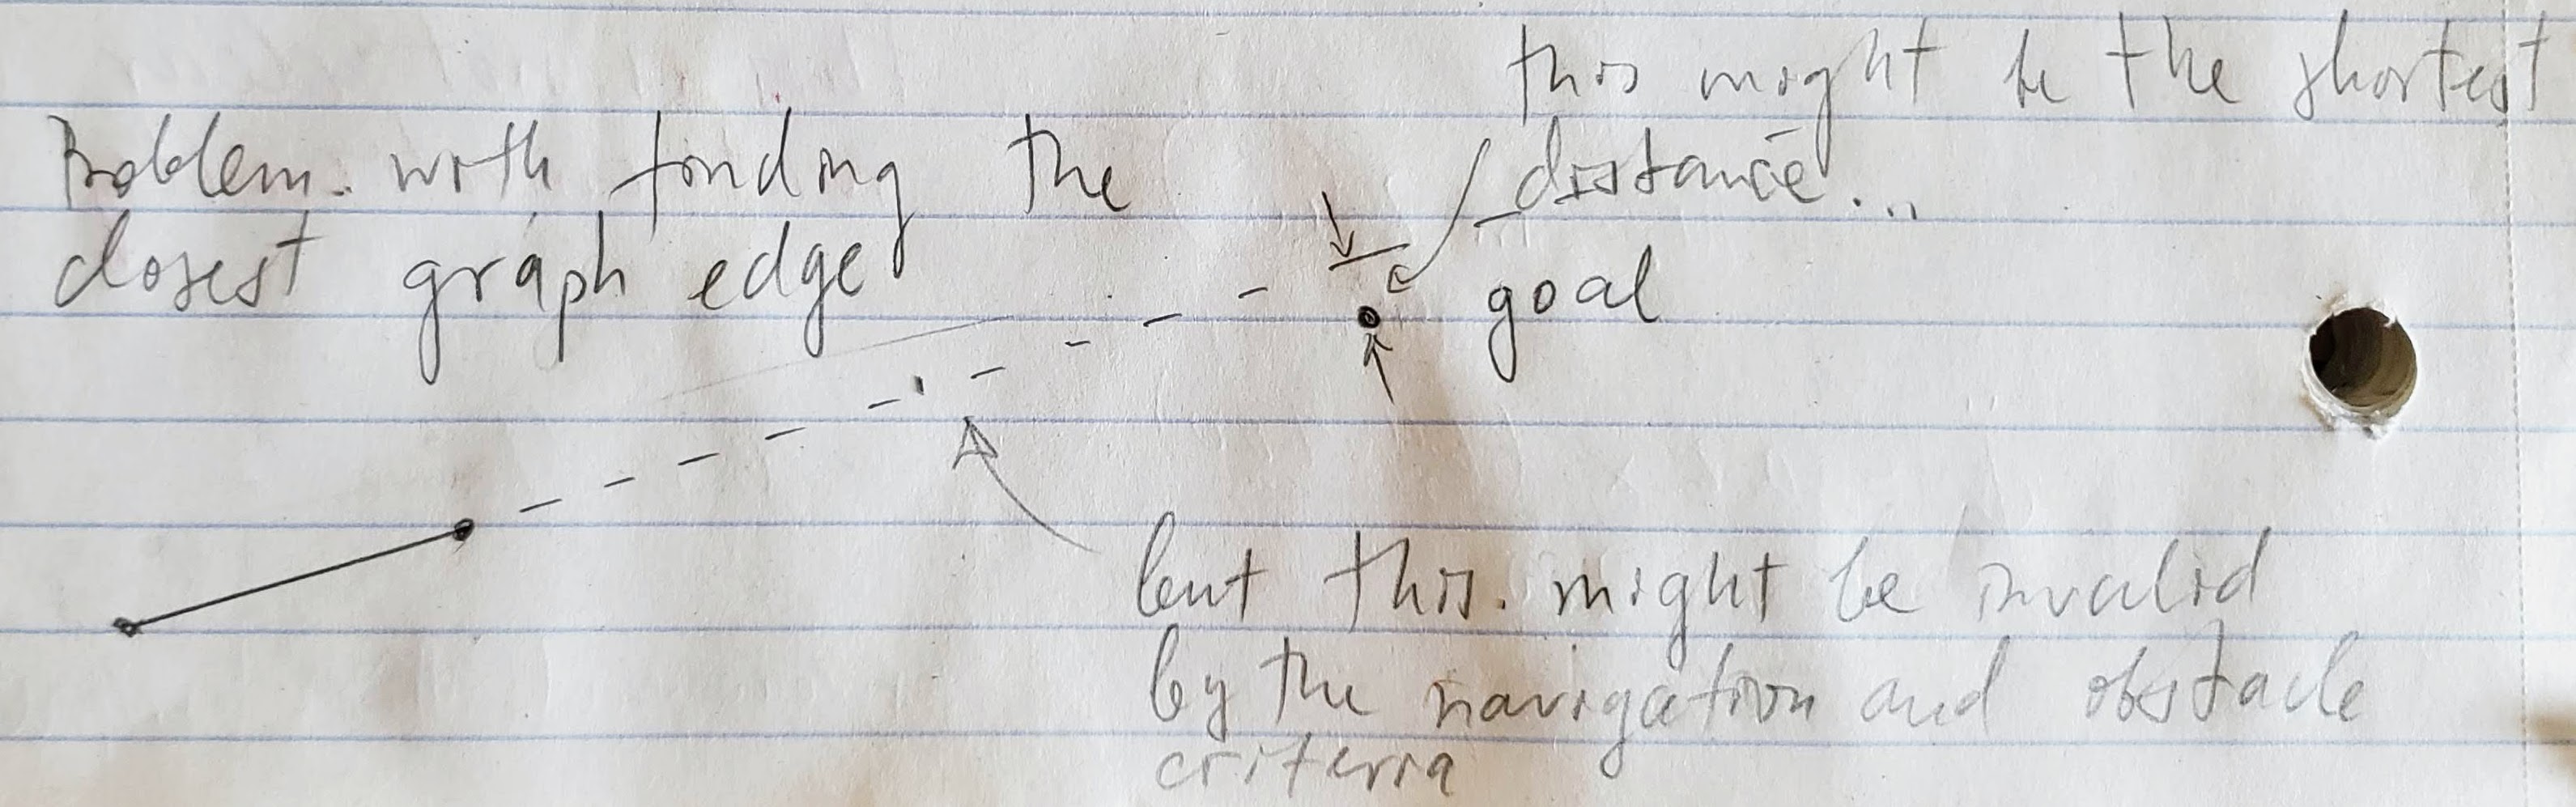 Problem. with finding the
closest graph edge
this might be the shortest
distance...
goal
but this. might be invalid
by the navigation and obstacle
criteria